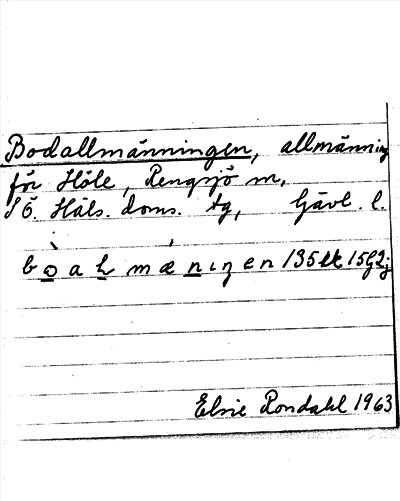 Bodallmänningen, allmänning
för Höle, Rengsjö m,
SÖ. Häls. doms. tg, Gävl. l.
bo̲al̲mæn̲ıŋen 135
Elsie Rondahl 1963